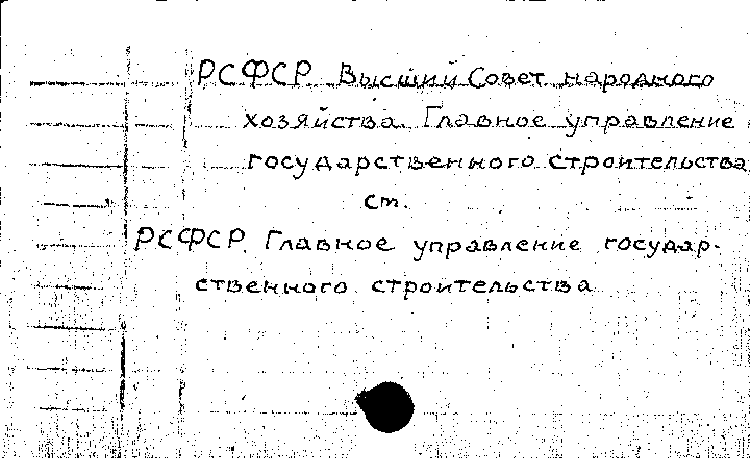 РСФСР Высший Совет народного
хозяйства. Главное управление
государственного строительства
ст.
РСФСР. Главное управление государ-
ственного строительства